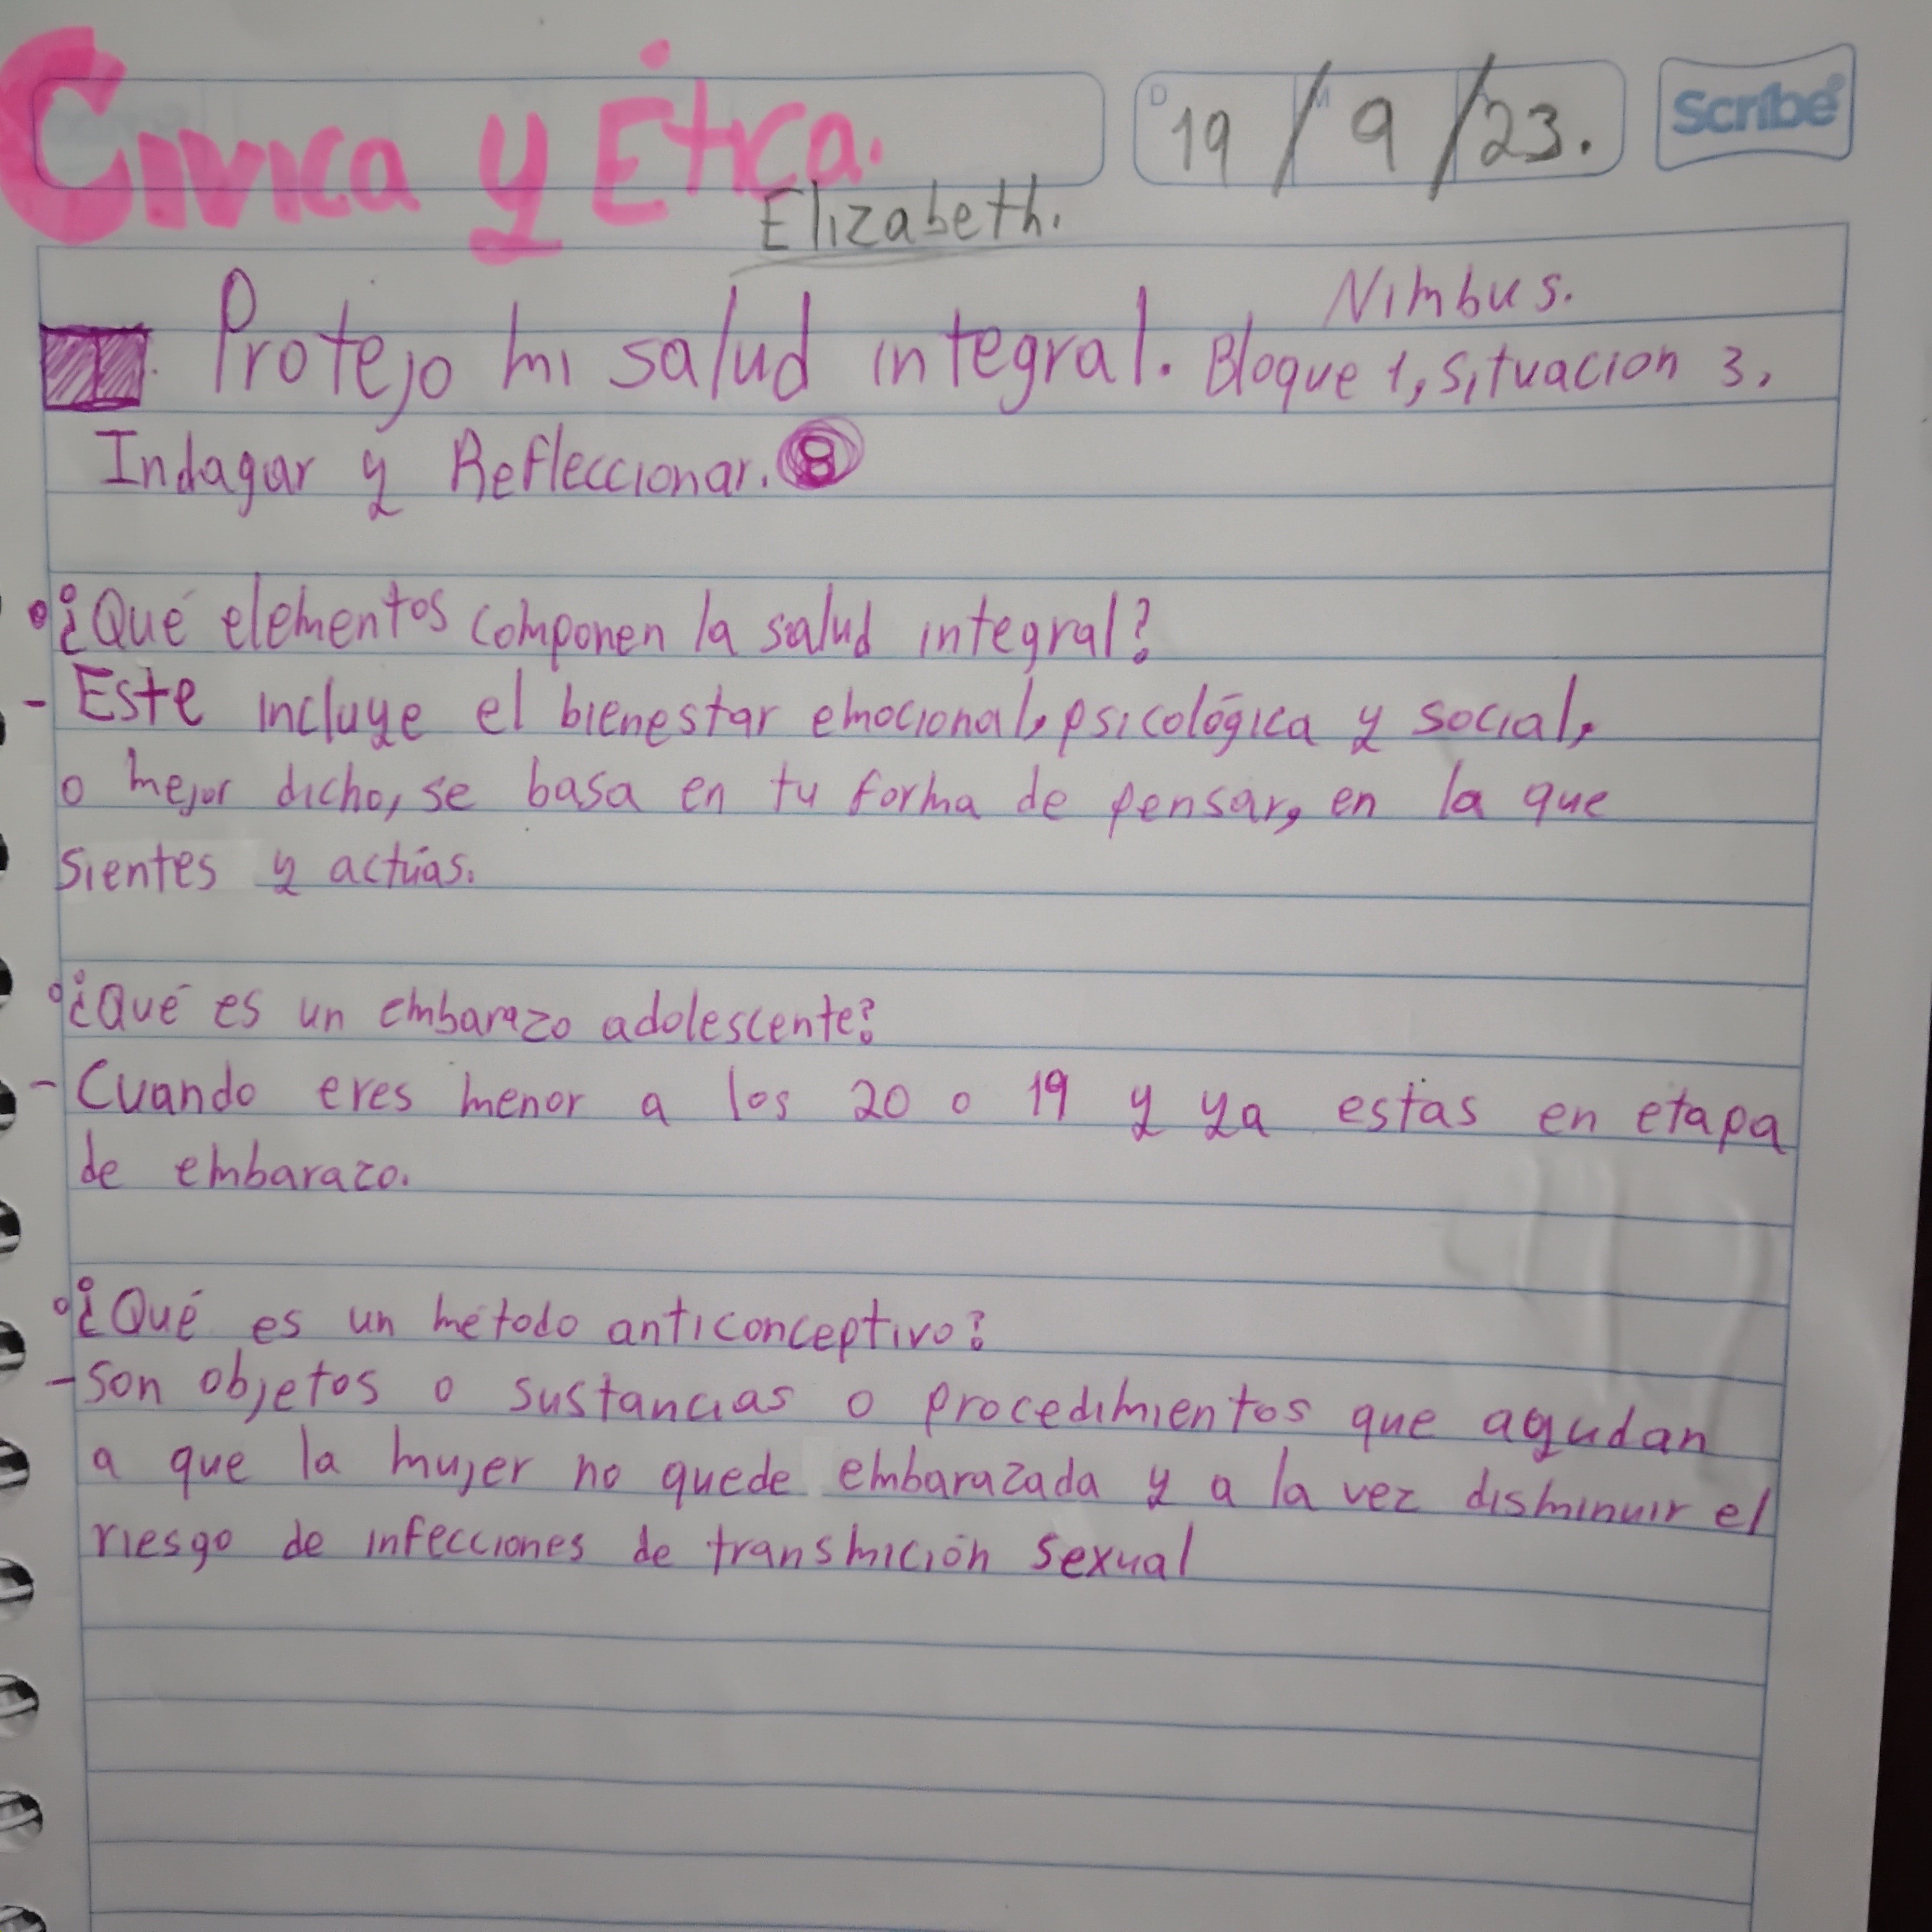 Cívica y Ética.
D 19 / M 9 / 23.
Scribe
Elizabeth.
Nimbus.
Protejo mi salud integral. Bloque 1, situacion 3,
Indagar y Refleccionar. 8
•¿Qué elementos componen la salud integral?
- Este incluye el bienestar emocional, psicológica y social,
o mejor dicho, se basa en tu forma de pensar, en la que
sientes y actúas.
°¿Qué es un embarazo adolescente?
- Cuando eres menor a los 20 o 19 y ya estas en etapa
de embarazo.
°¿Qué es un método anticonceptivo?
- Son objetos o sustancias o procedimientos que agudan
a que la mujer no quede embarazada y a la vez disminuir el
riesgo de infecciones de transmición sexual